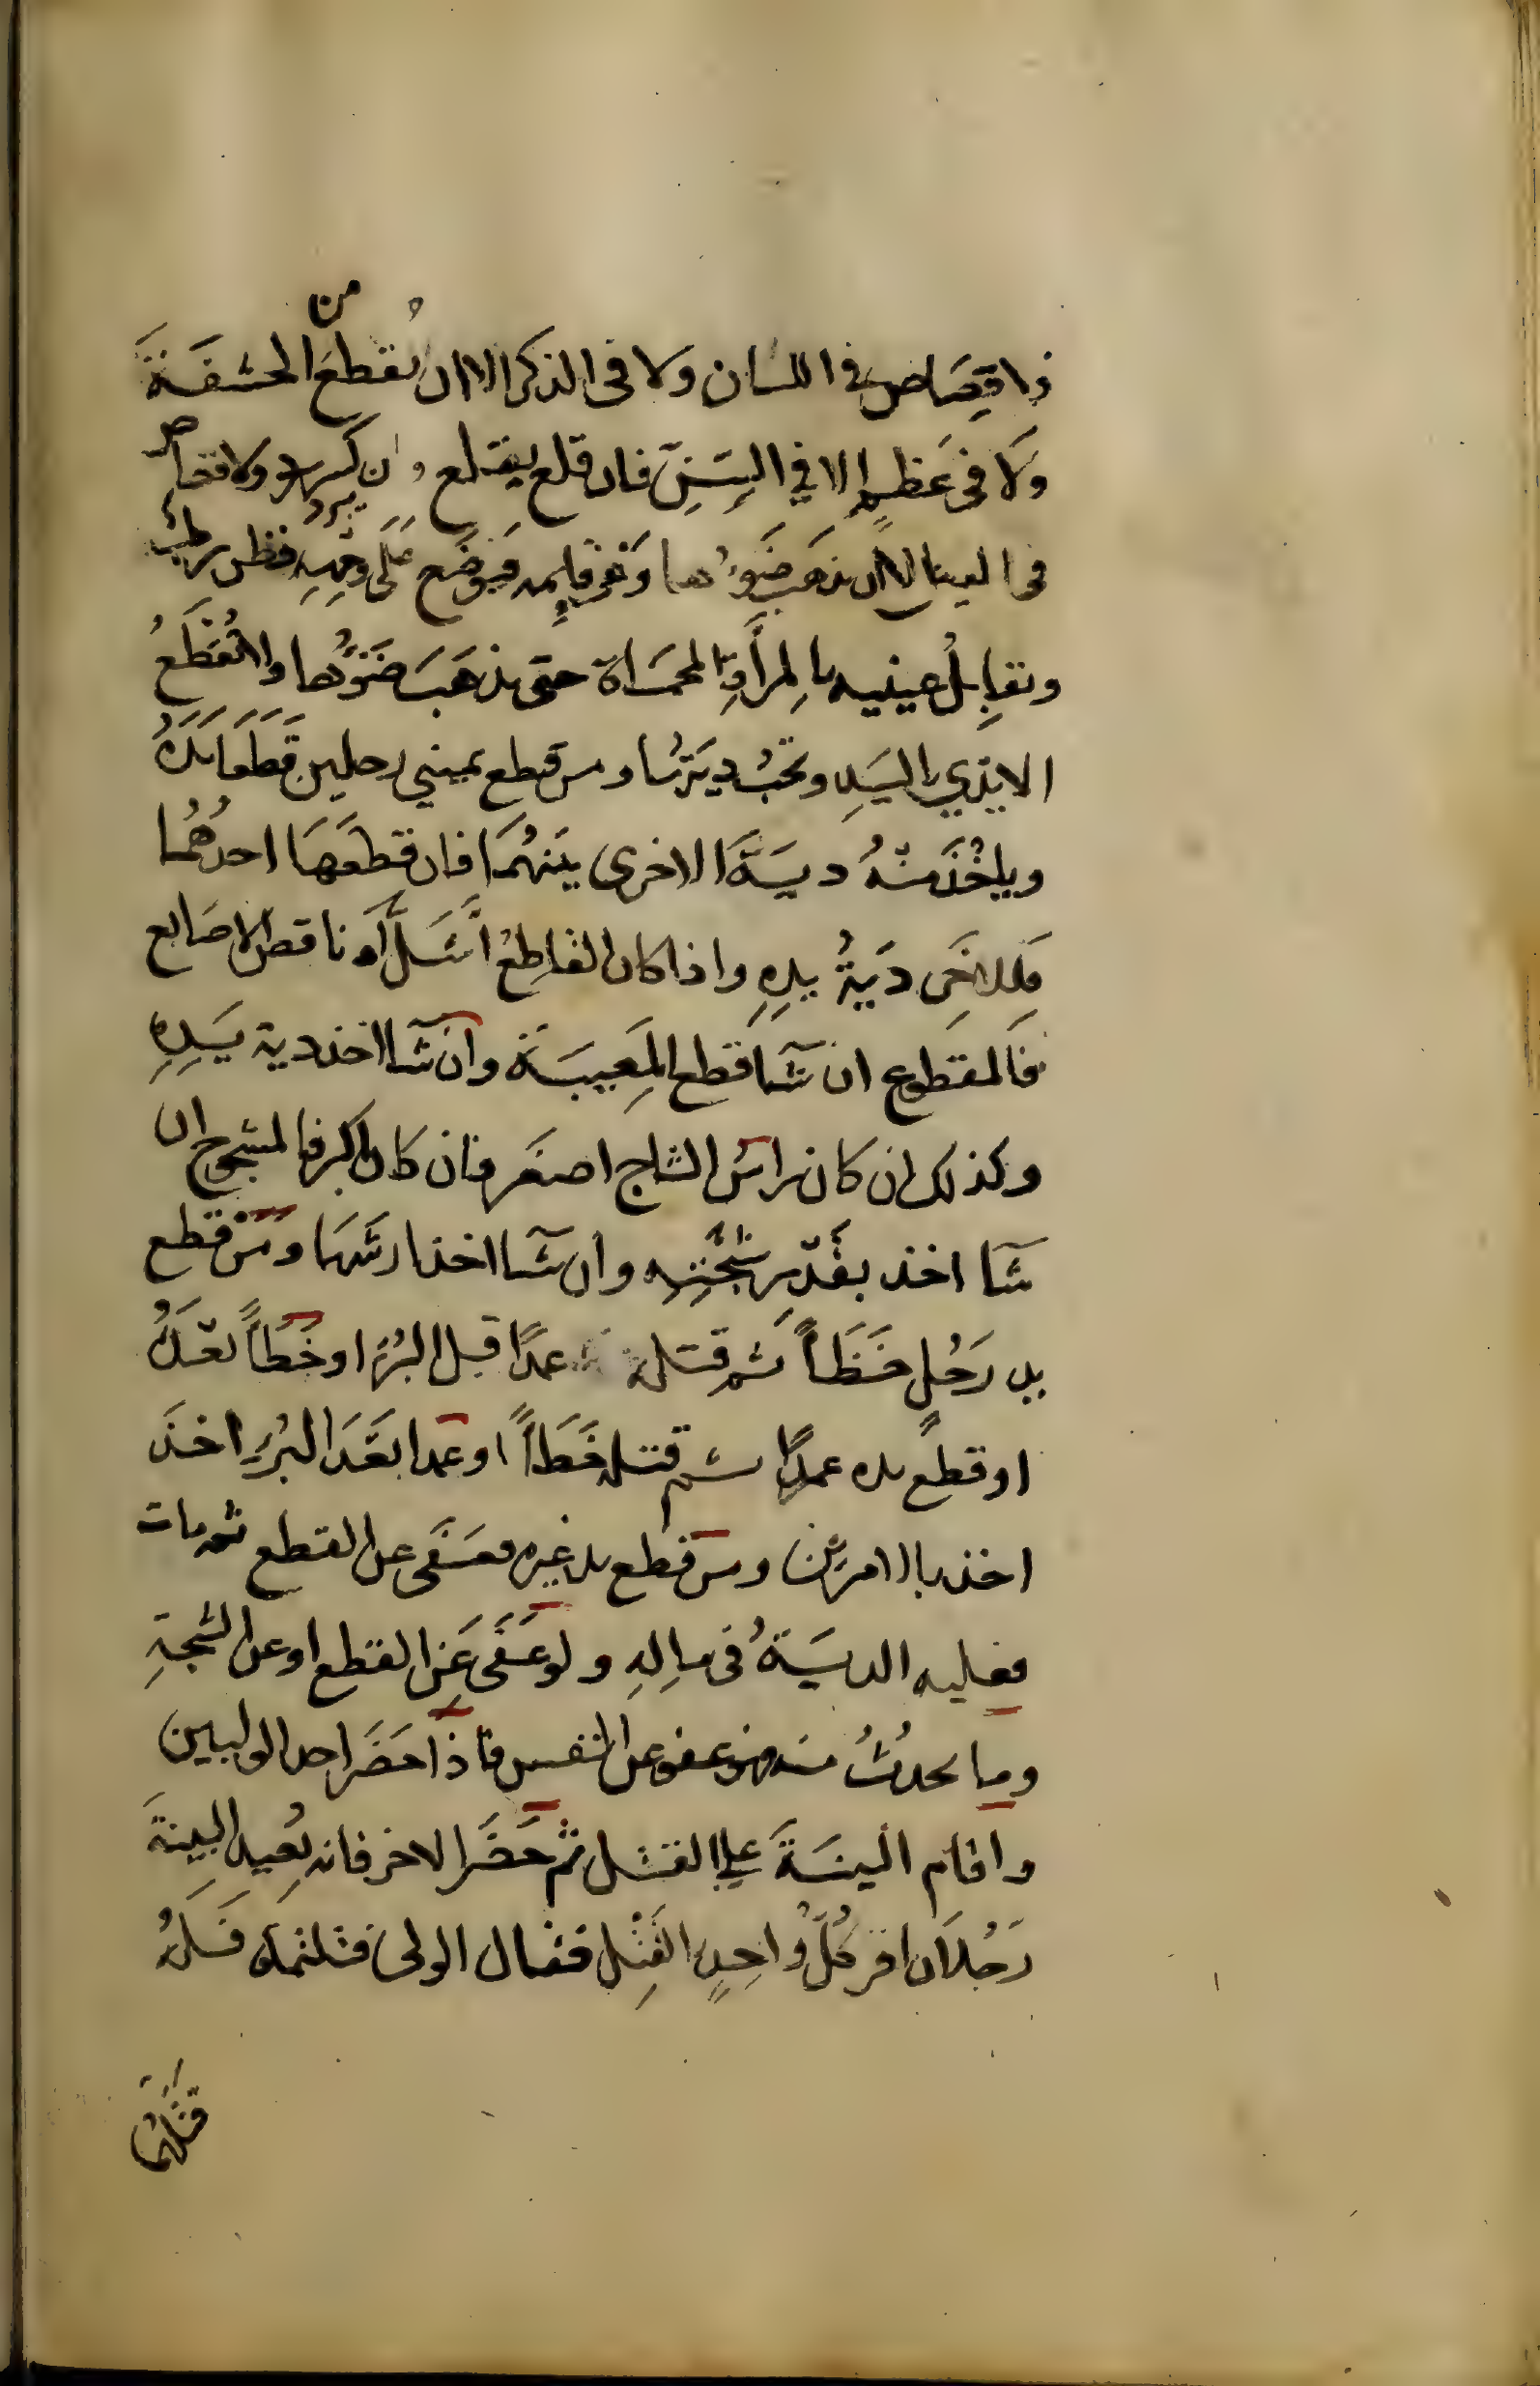 من
ولا قِصَاص في اللسان ولا فى الذكر الا ان تُقطعَ الحشفَةَ
وَلا فى عَظمٍ الا في السِّنِّ فان قلع يقلع وان كسر يبرد ولا قصاص
فى العين الا ان يذهَب ضَوءُها وَهى قايمه فيوضَع عَلَى وَجهِهِ قطن رطب
وتقابِلُ عينيه بالمِرأةِ المحمَاة حتى يذهَبَ ضَوُها ولا تُقطَعُ
الايدِي باليَدِ وتجبُ ديَتُها ومن قطع يميني رجلين قَطَعَا يَدَهُ
وياخُذَ منهُ ديَةَ الاخرى بينهُمَا فان قطعَهَا احدُهُما
فللاخَرِ ديَةُ يدِهِ واذا كان القاطِعُ اشَلَّ أو ناقص الاصَابع
فالمقطوع ان شَآ قطع المَعِيبَة وان شآ اخذ دية يَدِهِ
وكذلك ان كان راسُ الشاج اصغر فان كان اكبر فالمشجوج ان
شآ اخذ بقَدْرِ شجَّتِهِ وان شآ اخذ ارشَهَا ومَنْ قطع
يد رَجُلٍ خَطَأً ثم قتله عمدًا قبل البُرْءِ او خَطَأً بَعْدَهُ
او قطعَ يده عمدًا ثم قتله خَطَأً او عمدا بَعْدَ البُرْءِ اخذَ
اخذ بالامرَين ومن قطع يد غيره فعَفَى عن القطع ثم مات
فعليه الديَةُ فى مالِهِ ولو عَفَى عَنِ القطع او عن الشجةِ
وما يحدُثُ منه فهو عفو عن النفس فاذا حَضَرَ احد الوليين
واقام البينَةَ علي القتل ثم حَضَرَ الاخر فانه يُعِيد البينةَ
رَجُلَان اقر كُلُّ وَاحِدٍ القتلِ فقال الولى قتلتماه فَلَهُ
قتلهُما